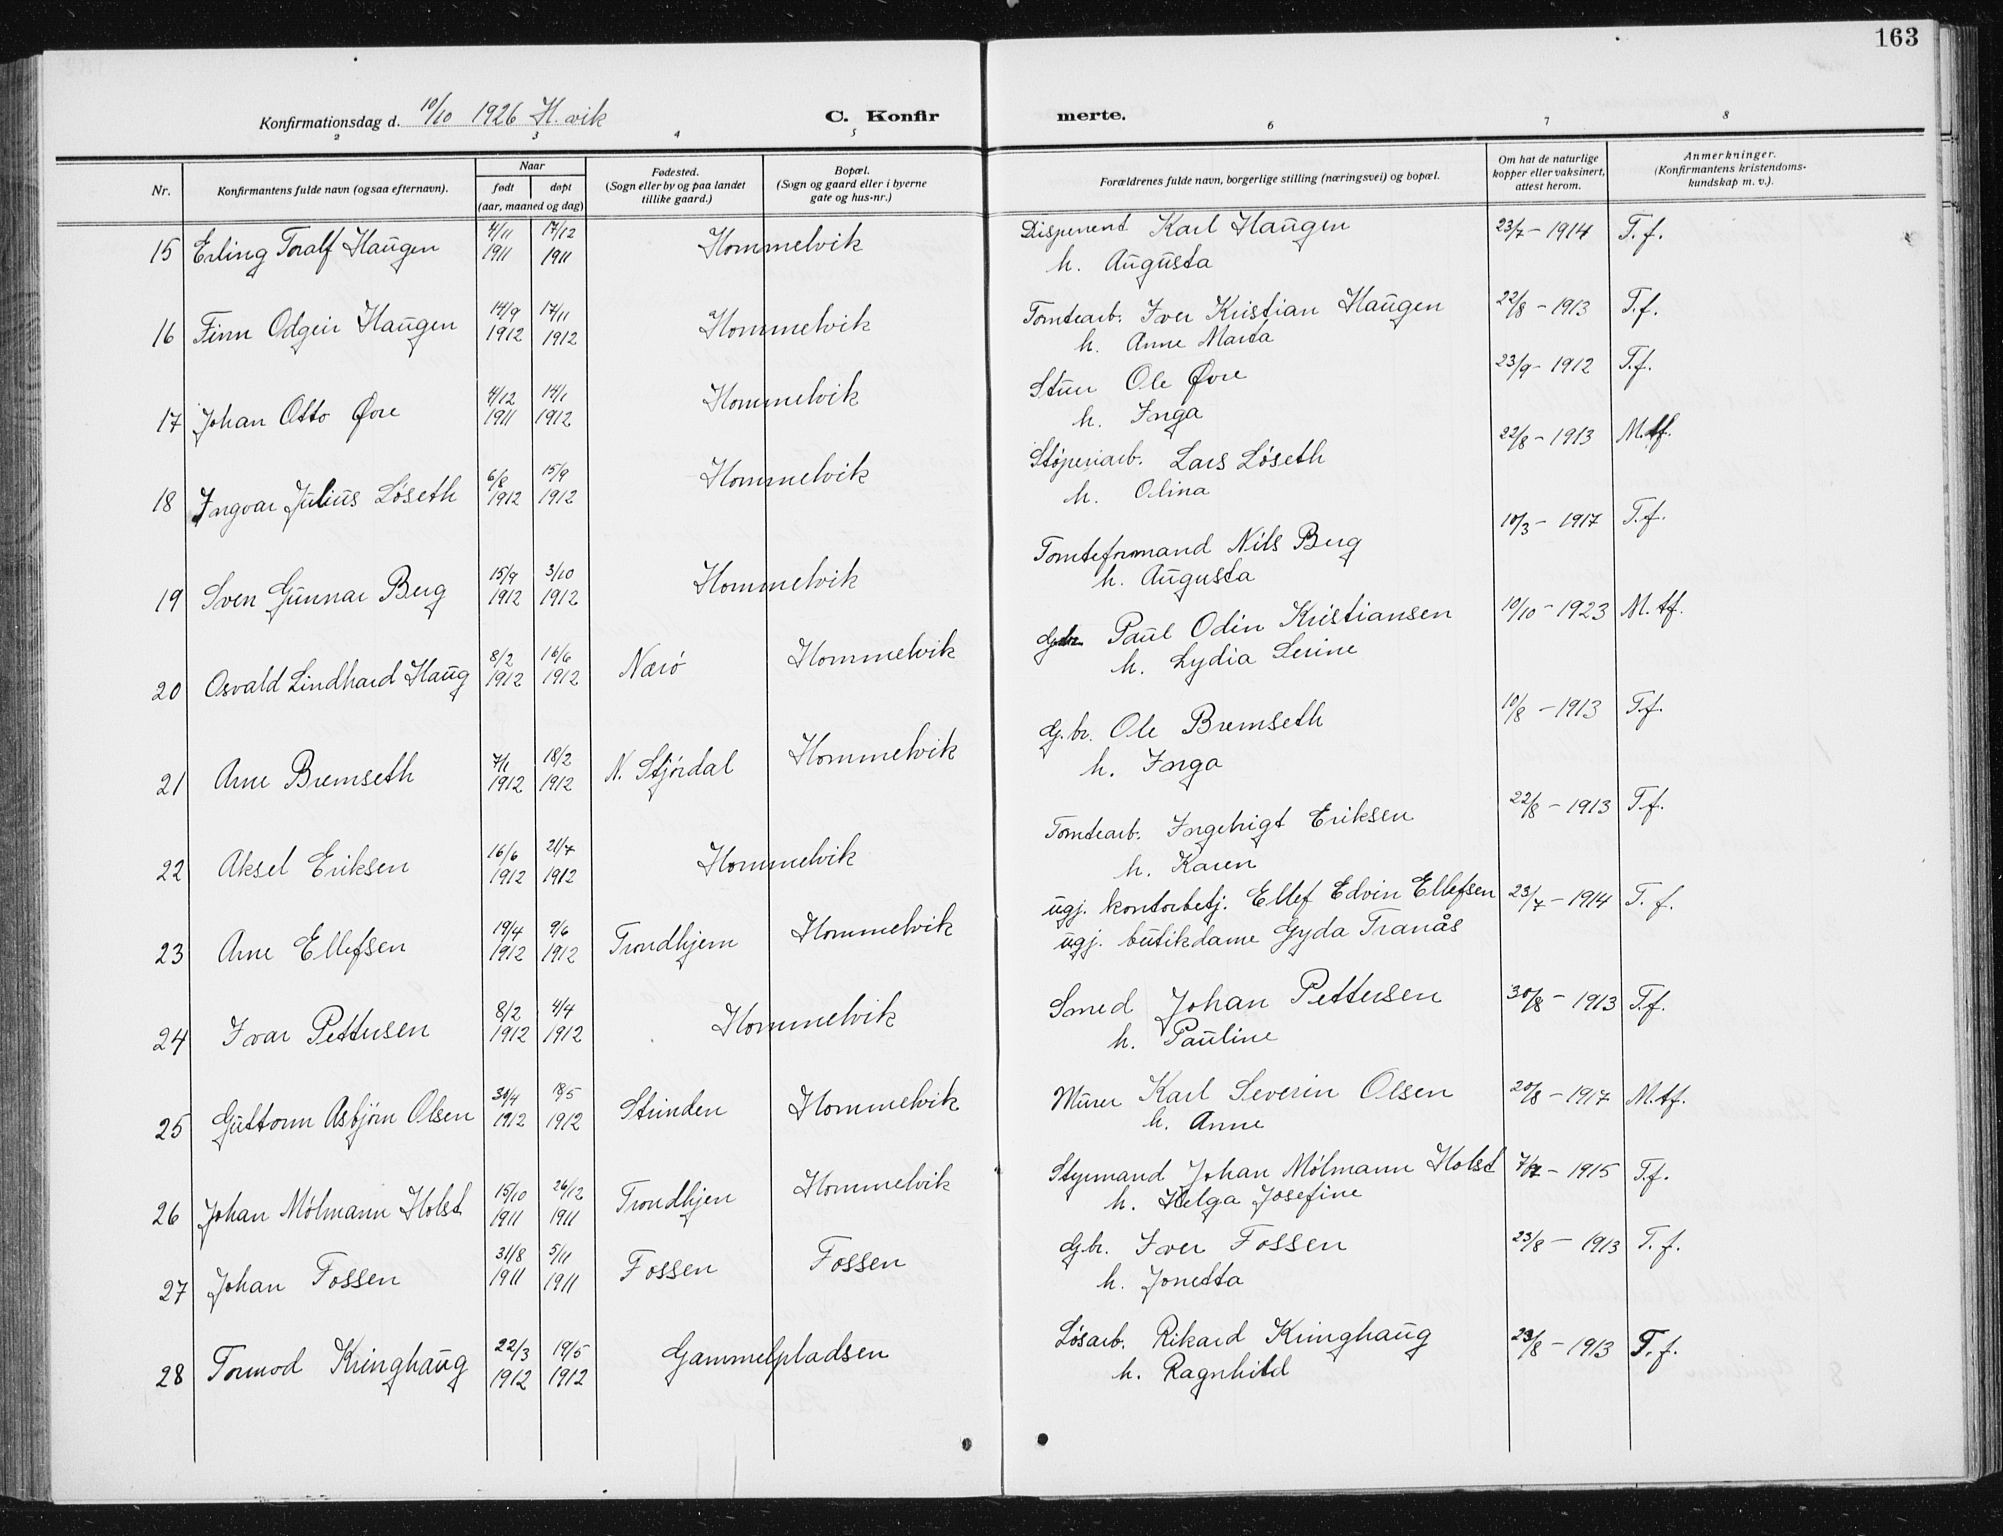 163
Konfirmationsdag d. 10/10 1926 H.vik C. Konfirmerte.
2 3 4 5 6 7 8
Nr. Konfirmantens fulde navn (ogsaa efternavn). Naar født døpt (aar, maaned og dag) Fødested. (Sogn eller by og paa landet tillike gaard.) Bopæl. (Sogn og gaard eller i byerne gate og hus-nr.) Forældrenes fulde navn, borgerlige stilling (næringsvei) og bopæl. Om hat de naturlige kopper eller vaksinert, attest herom. Anmerkninger. (Konfirmantens kristendomskundskap m. v.).
15 Erling Toralf Haugen 4/11 1911 17/12 1911 Hommelvik Disponent Karl Haugen 23/7 - 1914 T.f.
h. Augusta
16 Finn Odgeir Haugen 14/9 1912 17/11 1912 Hommelvik Tomtearb. Iver Kristian Haugen 22/8 - 1913 T.f.
h. Anne Marta
17 Johan Otto Øvre 4/12 1911 14/1 1912 Hommelvik Stuer Ole Øvre 23/9 - 1912 T.f.
h. Inga
18 Ingvar Julius Løseth 6/8 1912 15/9 1912 Hommelvik Støperiarb. Lars Løseth 22/8 - 1913 M.tf.
h. Olina
19 Sven Gunnar Berg 15/9 1912 3/10 1912 Hommelvik Tomteformand Nils Berg 10/3 - 1917 T.f.
h. Augusta
20 Osvald Lindhard Haug 8/2 1912 16/6 1912 Nærø Hommelvik Gbr. Paul Odin Kristiansen 10/10 - 1923 M.tf.
h. Lydia Serine
21 Arne Bremseth 7/1 1912 18/2 1912 N. Stjørdal Hommelvik G.br. Ole Bremseth 10/8 - 1913 T.f.
h. Inga
22 Aksel Eriksen 16/6 1912 21/7 1912 Hommelvik Tomtearb. Ingebrigt Eriksen 22/8 - 1913 T.f.
h. Karen
23 Arne Ellefsen 19/4 1912 9/6 1912 Trondhjem Hommelvik ugj. kontorbetj. Ellef Edvin Ellefsen 23/7 - 1914 T.f.
ugj. butikdame Gyda Tranås
24 Ivar Pettersen 8/2 1912 4/4 1912 Hommelvik Smed Johan Pettersen 30/8 - 1913 T.f.
h. Pauline
25 Guttorm Asbjørn Olsen 30/4 1912 18/5 1912 Strinden Hommelvik Murer Karl Severin Olsen 20/8 - 1917 M.tf.
h. Anne
26 Johan Mølmann Holst 15/10 1911 26/12 1911 Trondhjem Hommelvik Styrmand Johan Mølmann Holst - 1915 T.f.
h. Helga Josefine
27 Johan Fossen 31/8 1911 5/11 1911 Fossen Fossen Gbr. Iver Fossen 23/8 - 1913 T.f.
h. Jonetta
28 Tormod Kringhaug 22/3 1912 19/5 1912 Gammelpladsen Løsarb. Rikard Kringhaug 23/8 - 1913 T.f.
h. Ragnhild